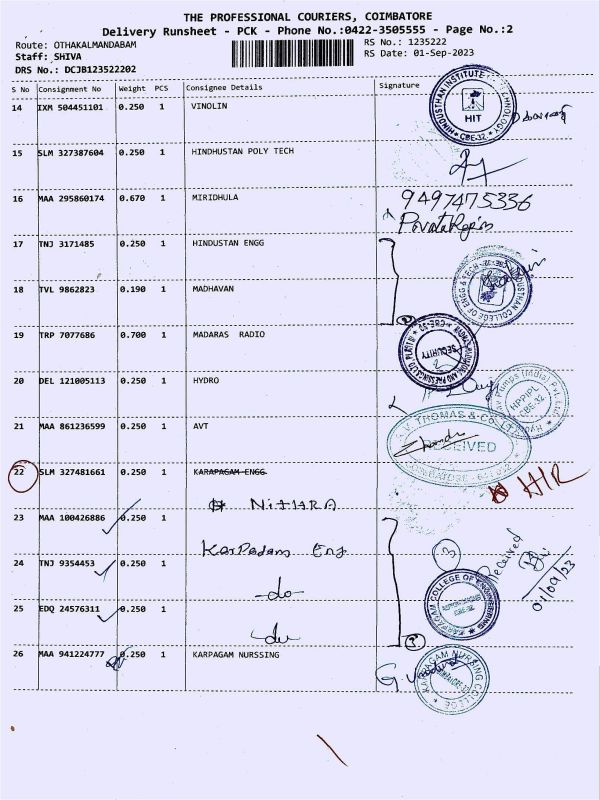 THE PROFESSIONAL COURIERS, COIMBATORE
Delivery Runsheet - PCK - Phone No.:0422-3505555 - Page No.:2
Route: OTHAKALMANDABAM
RS No.: 1235222
Staff: SHIVA
RS Date: 01-Sep-2023
DRS No.: DCJB123522202
S No Consignment No Weight PCS Consignee Details Signature
14 IXM 504451101 0.250 1 VINOLIN
HIT
CBE-32
15 SLM 327387604 0.250 1 HINDHUSTAN POLY TECH
16 MAA 295860174 0.670 1 MIRIDHULA
9497475336
17 TNJ 3171485 0.250 1 HINDUSTAN ENGG
18 TVL 9862823 0.190 1 MADHAVAN
19 TRP 7077686 0.700 1 MADARAS RADIO
SECURITY
20 DEL 121005113 0.250 1 HYDRO
HPPIPL
CBE-32
21 MAA 861236599 0.250 1 AVT
V. THOMAS & CO.
RECEIVED
22 SLM 327481661 0.250 1 KARAPAGAM ENGG
NITHRA
23 MAA 100426886 0.250 1
Karpadam Eng
3
Received
24 TNJ 9354453 0.250 1
-do-
01/09/23
KARPAGAM COLLEGE OF ENGINEERING
25 EDQ 24576311 0.250 1
-do-
3
26 MAA 941224777 0.250 1 KARPAGAM NURSSING
KARPAGAM NURSING COLLEGE